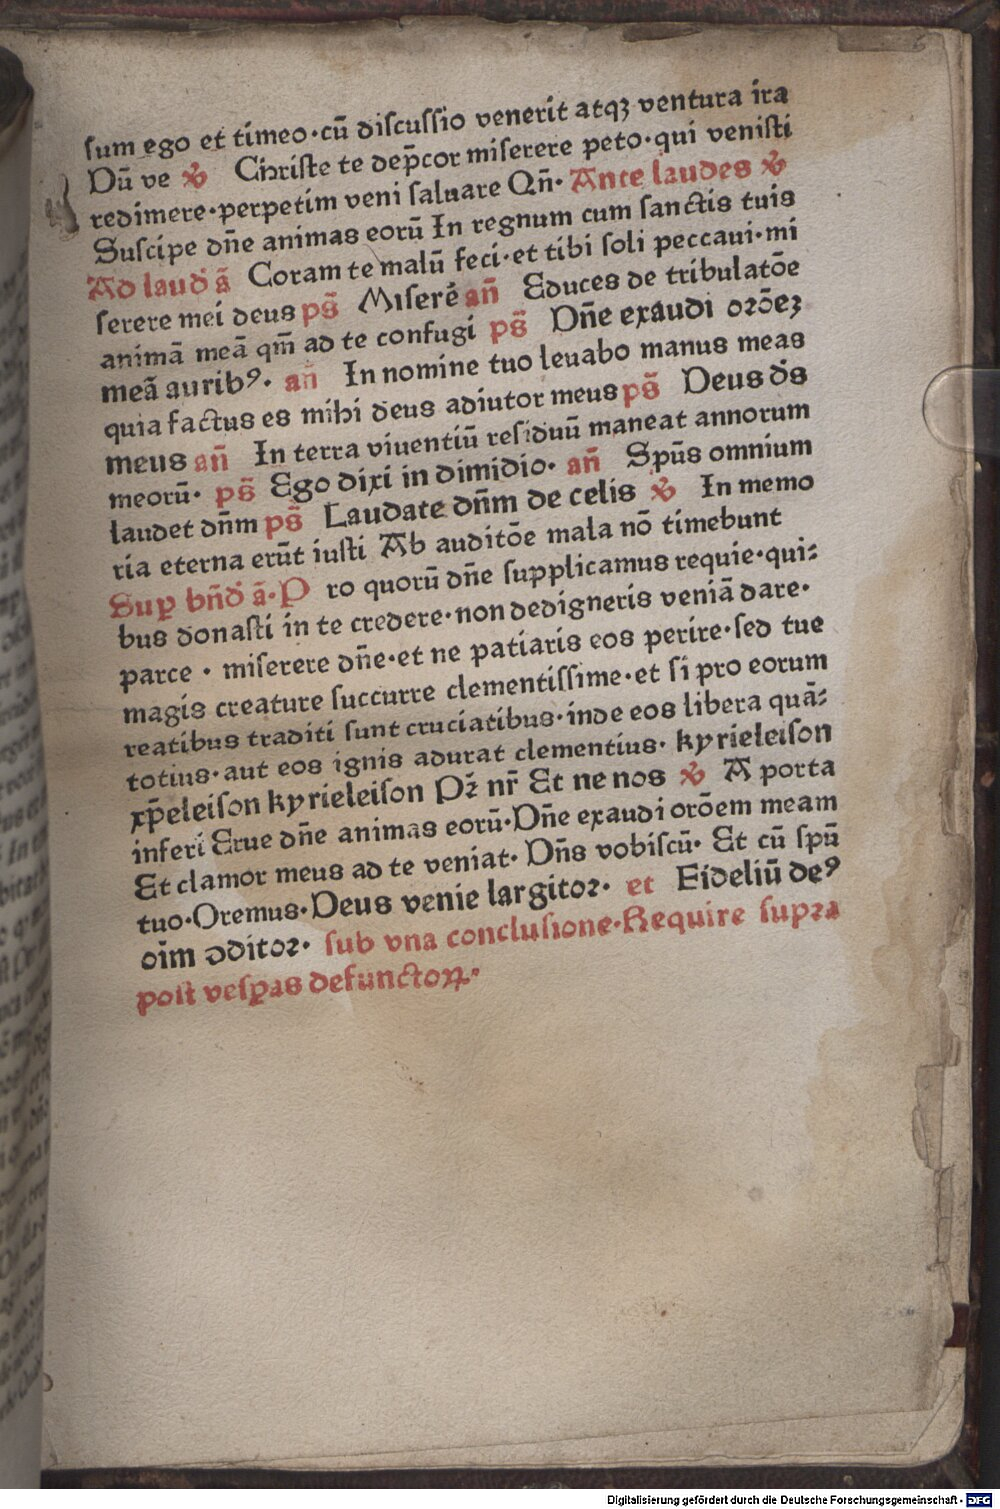 sum ego et timeo·cū discussio venerit atqꝫ ventura ira
Dū ve ℣ Christe te dep̄cor miserere peto·qui venisti
redimere·perpetim veni saluare Qn̄· Ante laudes ℣
Suscipe dn̄e animas eorū In regnum cum sanctis tuis
Ad laud ā Coram te malū feci·et tibi soli peccaui·mi
serere mei deus ps̄ Miserē an̄ Educes de tribulatōe
animā meā qm̄ ad te confugi ps̄ Dn̄e exaudi orōeꝫ
meā auribꝰ· an̄ In nomine tuo leuabo manus meas
quia factus es mihi deus adiutor meus ps̄ Deus ds̄
meus an̄ In terra viuentiū residuū maneat annorum
meorū· ps̄ Ego dixi in dimidio· an̄ Spūs omnium
laudet dn̄m ps̄ Laudate dn̄m de celis ℣ In memo
ria eterna erūt iusti Ab auditōe mala nō timebunt
Sup bn̄d ā·P ro quorū dn̄e supplicamus requie·qui⸗
bus donasti in te credere·non dedigneris veniā dare·
parce · miserere dn̄e·et ne patiaris eos perire·sed tue
magis creature succurre clementissime·et si pro eorum
reatibus traditi sunt cruciatibus·inde eos libera quā⸗
totius·aut eos ignis adurat clementius· kyrieleison
xp̄eleison kyrieleison Pꝝ nr̄ Et ne nos ℣ A porta
inferi Erue dn̄e animas eorū·Dn̄e exaudi orōem meam
Et clamor meus ad te veniat· Dn̄s vobiscū· Et cū spū
tuo·Oremus·Deus venie largitoꝛ· et Fideliū deꝰ
oīm ↄditoꝛ· sub vna conclusione·Require supꝛa
post vesꝑas defunctoꝝ·
Digitalisierung gefördert durch die Deutsche Forschungsgemeinschaft - DFG